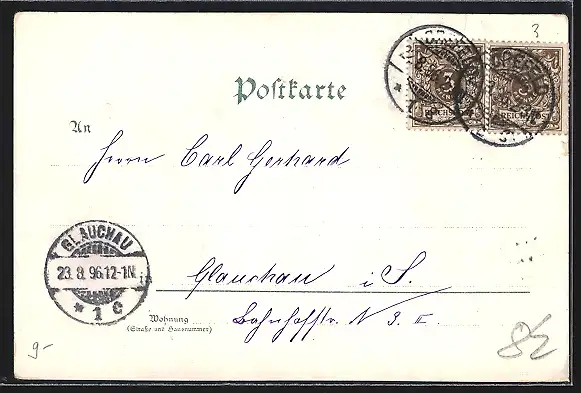 3
Postkarte
3 3
REICHSPOST REICHSPOST
An
Herrn Carl Gerhard
GLAUCHAU
23.8.96.12-1N.
* 1 c
in
Glauchau i. S.
Wohnung
(Straße und Hausnummer)
Bahnhofstr. N 3. II.
9-